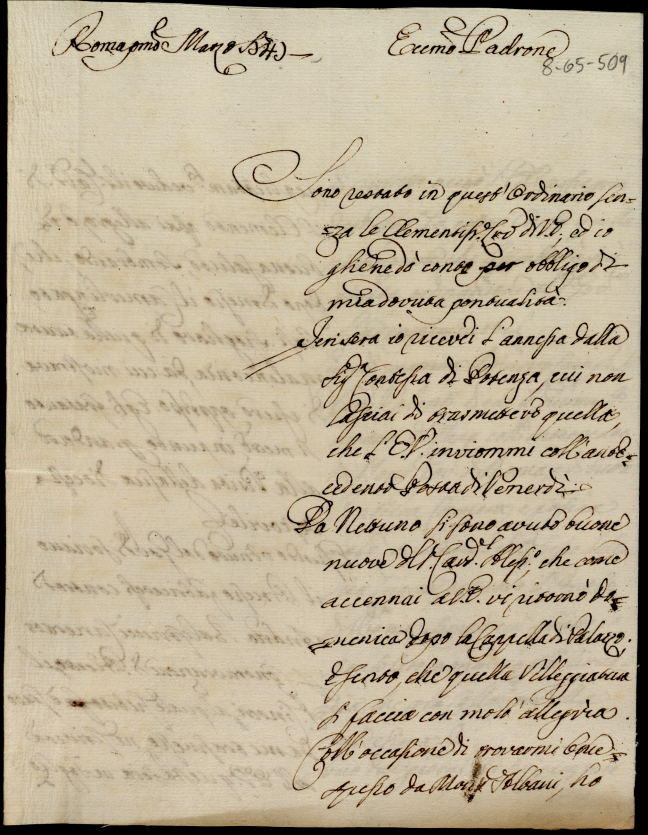 Roma pmo Marzo 1743 Eccmo Padrone
8-65-509
Sono restato in quest' Ordinario sen=
za le Clementisse. di V.E., ed io
gliene dò conto per obbligo di
mia dovuta pontualità.
Jeri sera io ricevei l'annessa dalla
Sigra Contessa di Potenza, cui non
lasciai di trasmettere quella,
che l'E.V. inviommi coll'ante=
cedente Posta di Venerdì.
Da Nettuno si sono avute buone
nuove del Sr. Card.le Aless.o, che come
accennai a V.E. vi ritornò do=
menica dopo la Cappella di Palazzo.
e sento, che quella Villeggiatura
si faccia con molt' allegria.
Coll' occasione di trovarmi bene
spesso da Monsr. Albani, ho